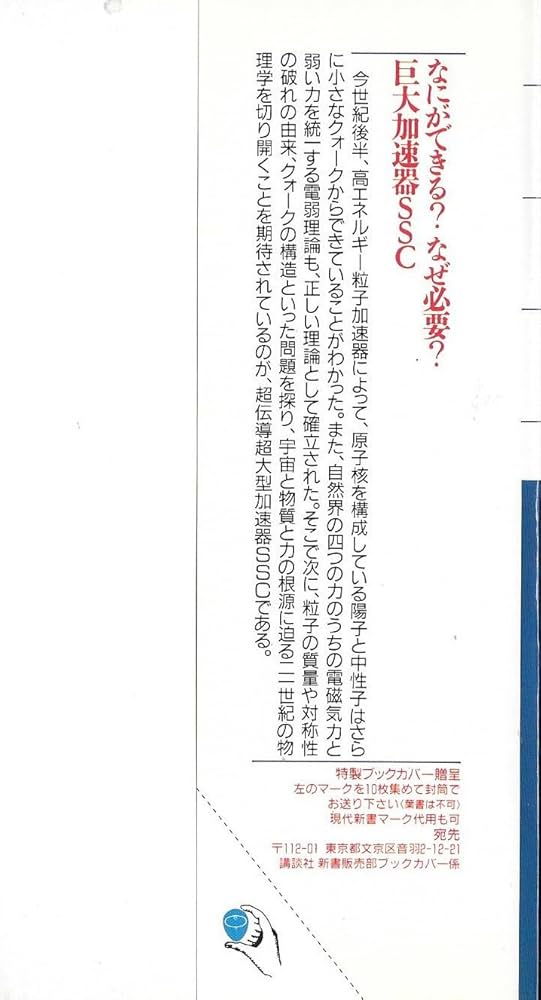 なにができる？なぜ必要？
巨大加速器SSC
今世紀後半、高エネルギー粒子加速器によって、原子核を構成している陽子と中性子はさら
に小さなクォークからできていることがわかった。また、自然界の四つの力のうちの電磁気力と
弱い力を統一する電弱理論も、正しい理論として確立された。そこで次に、粒子の質量や対称性
の破れの由来、クォークの構造といった問題を探り、宇宙と物質と力の根源に迫る二一世紀の物
理学を切り開くことを期待されているのが、超伝導超大型加速器SSCである。
特製ブックカバー贈呈
左のマークを10枚集めて封筒で
お送り下さい〈葉書は不可〉
現代新書マーク代用も可
宛先
〒112-01 東京都文京区音羽2-12-21
講談社 新書販売部ブックカバー係